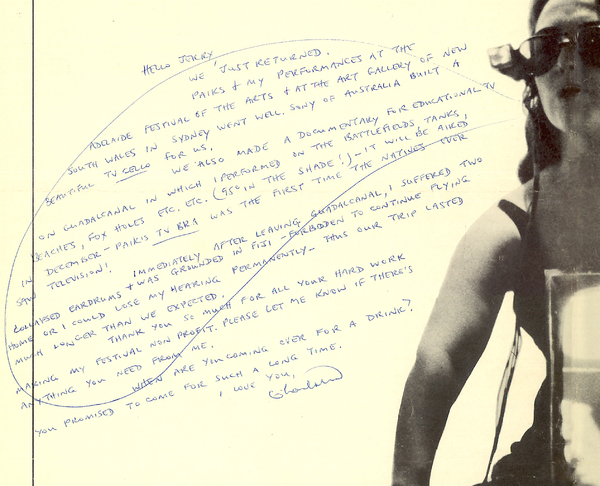 HELLO JERRY
WE 'JUST RETURNED.
PAIKS + MY PERFORMANCES AT THE
ADELAIDE FESTIVAL OF THE ARTS + AT THE ART GALLERY OF NEW
SOUTH WALES IN SYDNEY WENT WELL. SONY OF AUSTRALIA BUILT A
BEAUTIFUL TV CELLO FOR US.
WE ALSO MADE A DOCUMENTARY FOR EDUCATIONAL TV
ON GUADALCANAL IN WHICH I PERFORMED ON THE BATTLEFIELDS, TANKS,
BEACHES, FOX HOLES ETC. ETC. (95° IN THE SHADE!) - IT WILL BE AIRED
IN DECEMBER - PAIKIS TV BRA WAS THE FIRST TIME THE NATIVES EVER
SAW TELEVISION!
IMMEDIATELY AFTER LEAVING GUADALCANAL, I SUFFERED TWO
COLLAPSED EARDRUMS + WAS GROUNDED IN FIJI - FORBIDDEN TO CONTINUE FLYING
HOME OR I COULD LOSE MY HEARING PERMANENTLY - THUS OUR TRIP LASTED
MUCH LONGER THAN WE EXPECTED.
THANK YOU SO MUCH FOR ALL YOUR HARD WORK
MAKING MY FESTIVAL NON PROFIT. PLEASE LET ME KNOW IF THERE'S
ANYTHING YOU NEED FROM ME.
WHEN ARE YOU COMING OVER FOR A DRINK?
YOU PROMISED TO COME FOR SUCH A LONG TIME.
I LOVE YOU,